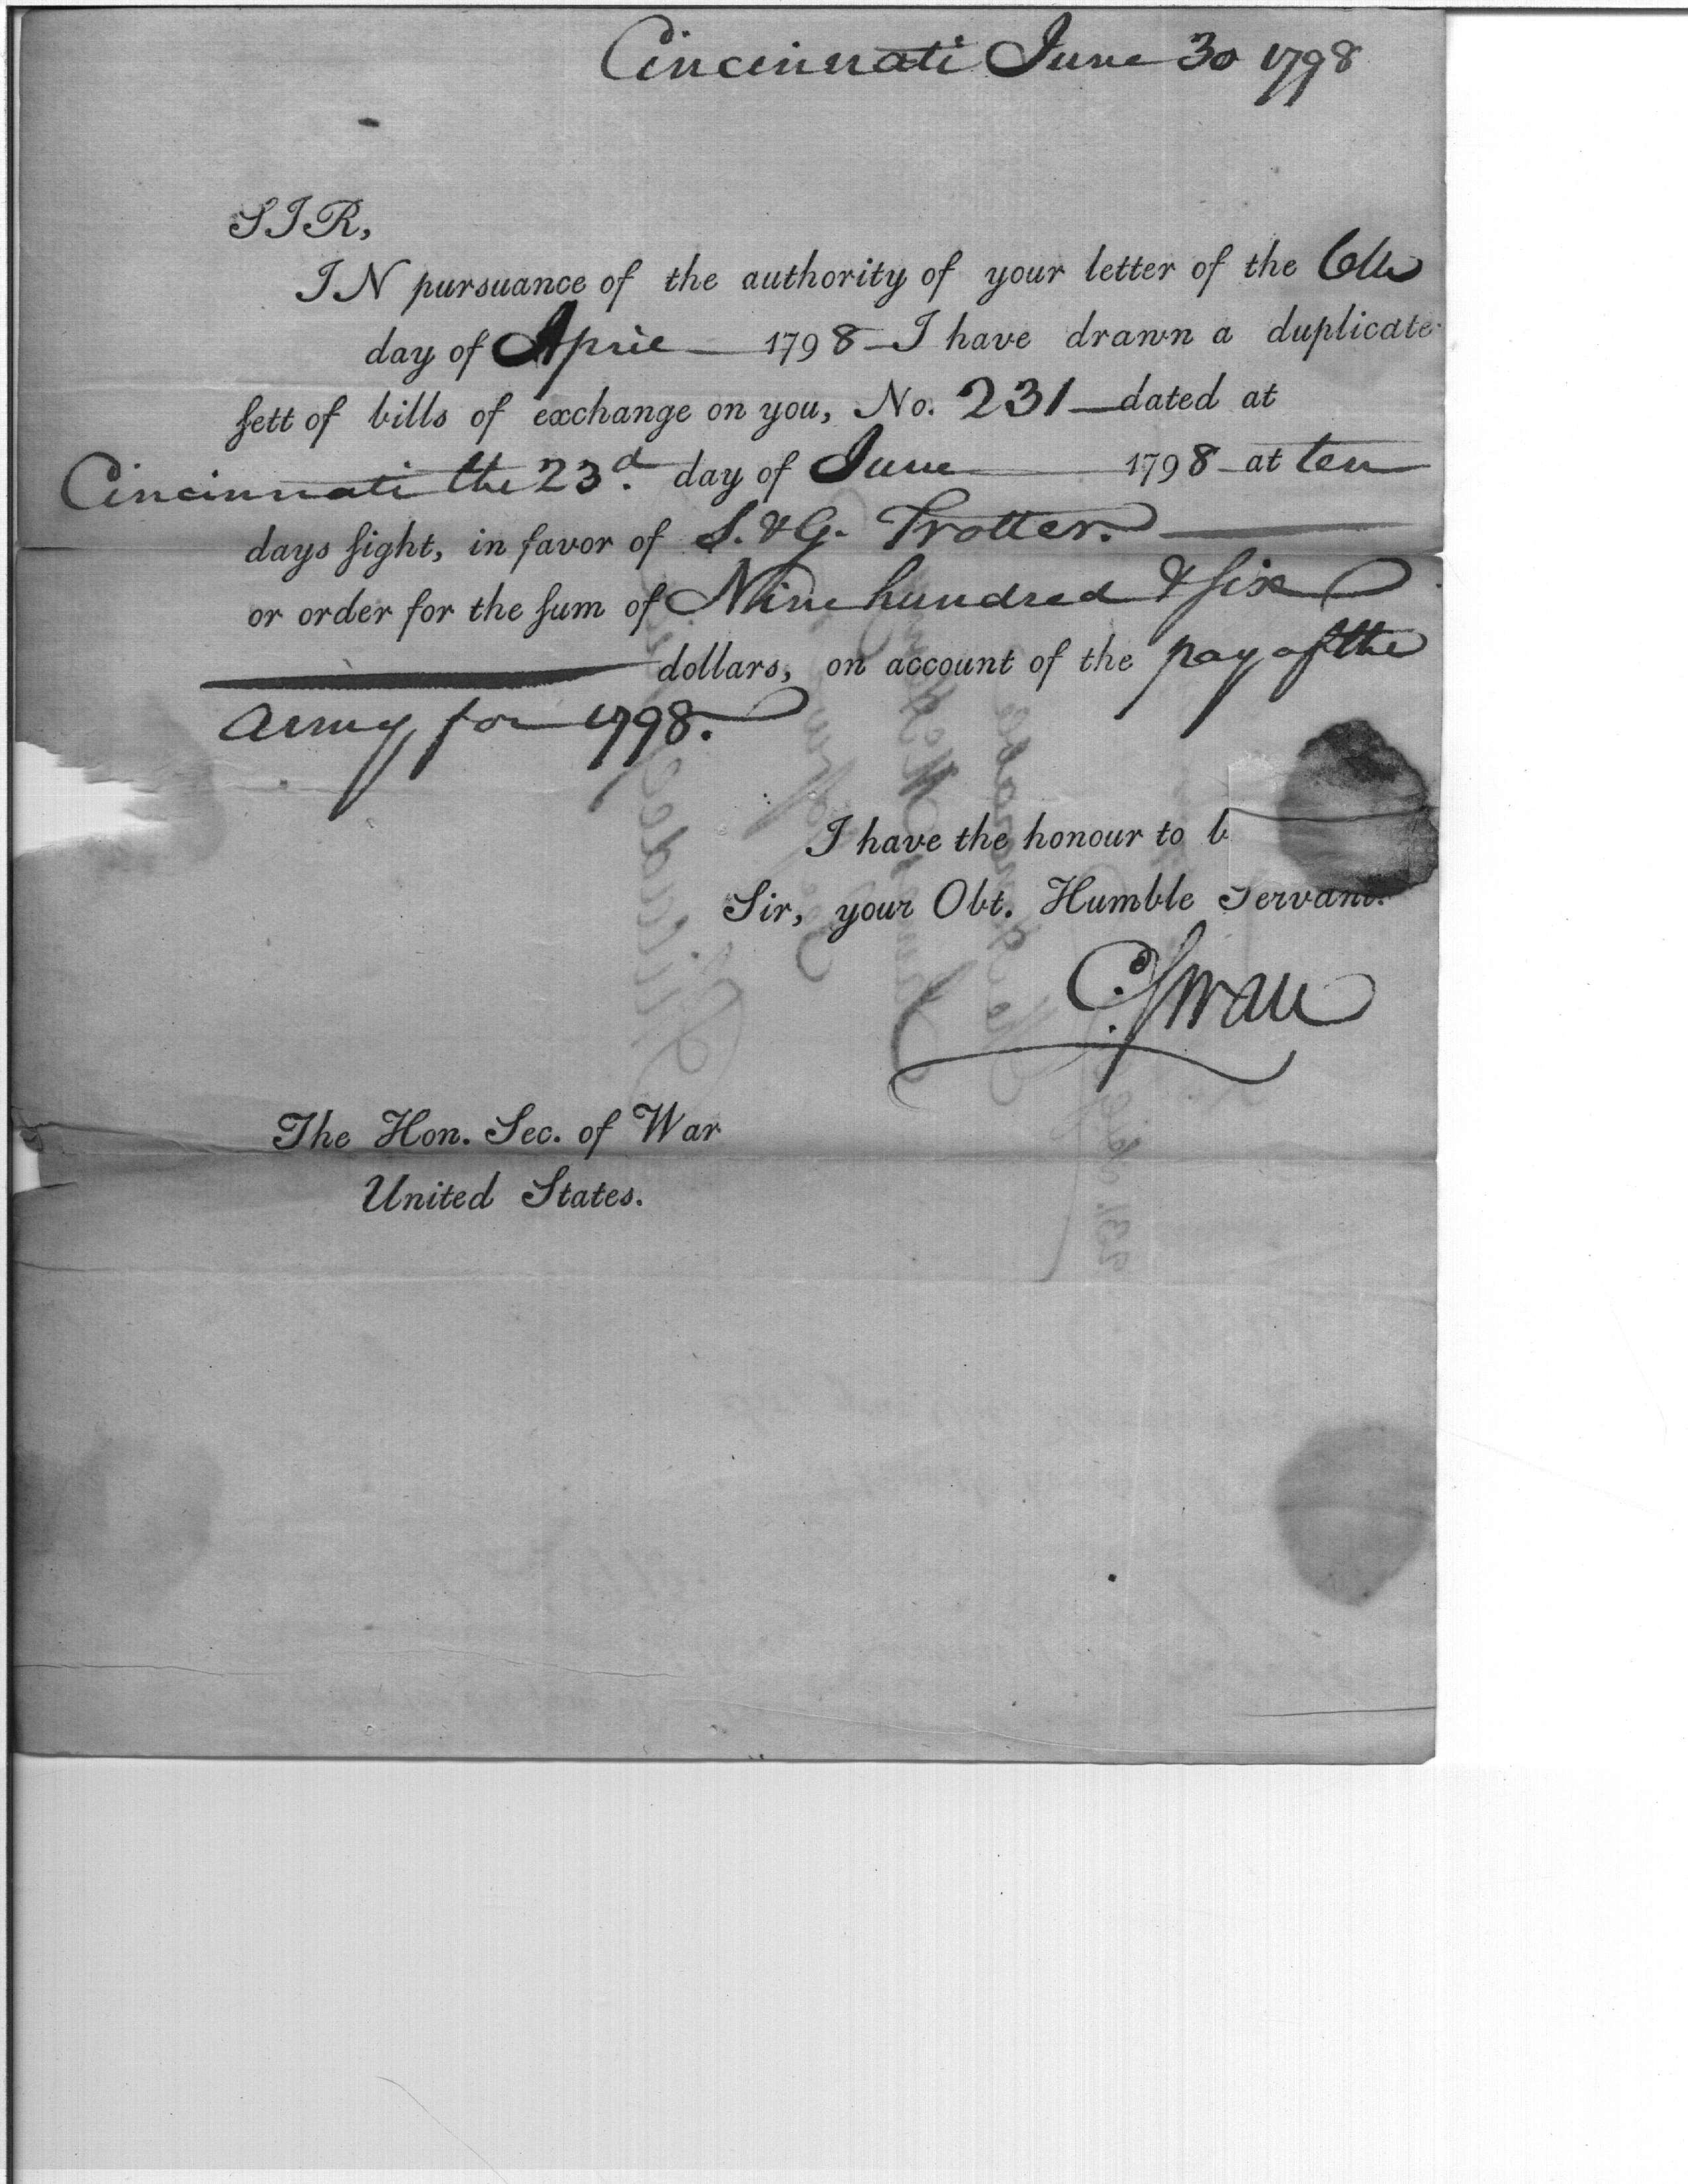 Cincinnati June 30 1798
SIR,
IN pursuance of the authority of your letter of the 6th
day of April 1798 I have drawn a duplicate
sett of bills of exchange on you, No. 231 dated at
Cincinnati the 23.d day of June 1798 at ten
days sight, in favor of S. & G. Trotter.
or order for the sum of Nine hundred & six
dollars, on account of the pay of the
Army for 1798.
I have the honour to b
Sir, your Obt. Humble Servant.
C. Swan
The Hon. Sec. of War
United States.